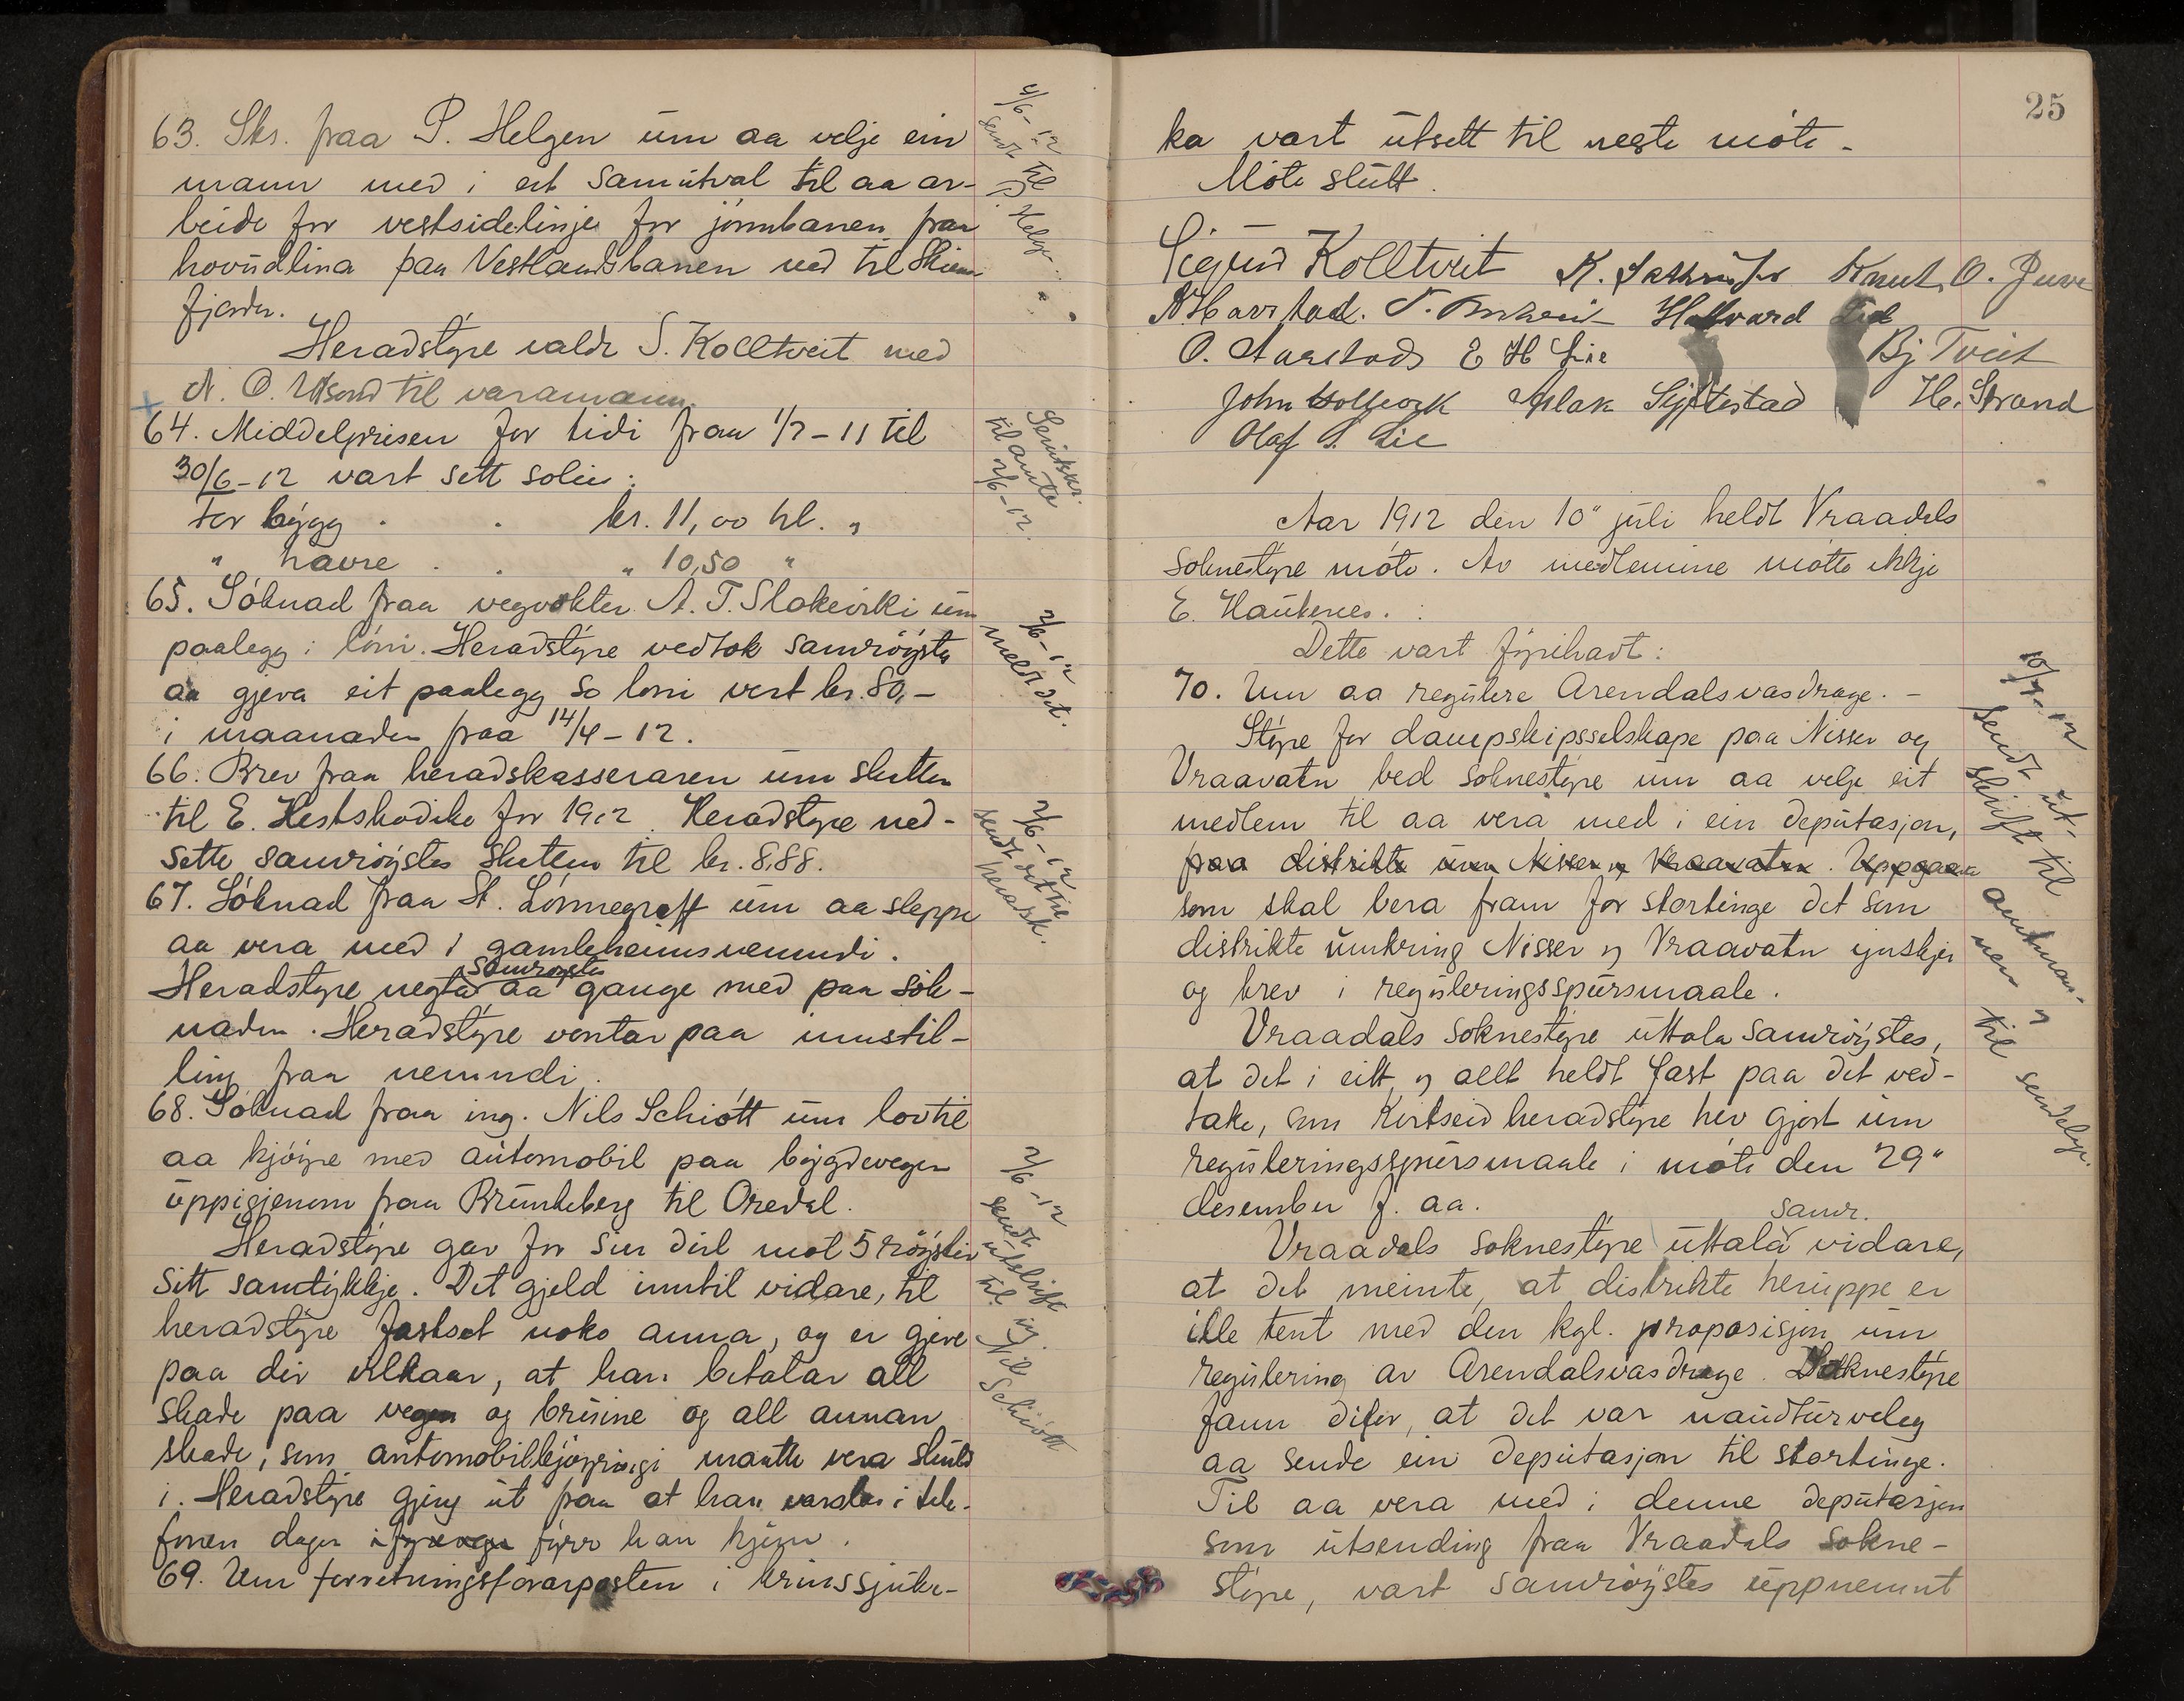 63. Skr. fraa P. Helgen um aa velje ein
mann med i eit samutval til aa ar-
beide for vestsidelinje for jónnbanen fraa
hovudlina paa Vestlandsbanen ned til Skiens
fjorden.
Heradstyre valde S. Kolltveit med
N. O. til varamann.
64. Middelprisen for tidi fraa 1/7-11 til
30/6-12 vart sett soleis:
For bygg . . kr. 11,00 hl. "
" havre . . " 10,50 "
65. Sóknad fraa vegvokter A. T. Slokvirki um
paalegg i lóni. Heradstyre vedtok samróystes
aa gjeva eit paalegg so loni vert kr. 80,-
i maanaden fraa 14/4-12.
66. Brev fraa heradskasseraren um skatten
til E. Hestskodike for 1912. Heradstyre ned-
sette samróystes skatten til kr. 8,88.
67. Sóknad fraa St. Lónnegraff um aa sleppe
aa vera med i gamleheimsnemndi.
samroystes
Heradstyre negta aa gange med paa sók-
naden. Heradstyre ventar paa innstil-
ling fraa nemndi.
68. Sóknad fraa ing. Nils Schiótt um lov til
aa kjóyre med automobil paa bygdevegen
uppigjenom fraa Brunkeberg til Oredal.
Heradstyre gav for sin deil mot 5 róyster
sitt samtykkje. Det gjeld inntil vidare, til
heradstyre fastset noko anna, og er gjeve
paa dei vilkaar, at han betalar all
skade paa vegen og bruine og all annan
skade, som automobilkjóyringi maatte vera skuld
i. Heradstyre gjeng ut fraa at han varslar i tele-
fonen dagen fyrr han kjem.
69. Um forretningsfórarposten i krinssjuke-
4/6-12
sendt til
P. Helgen
Serutskr.
til amte
2/6-12.
2/6-12
meldt det.
2/6-12
sendt det til
heradsk.
2/6-12
sendt
utskrift
til ing
Nils
Schiótt
25
ka vart utsett til neste móte.
Móte slutt.
Sigurd Kolltveit K. Knut O. Juve
N. Haavard Lid
O. Aarstad E H Lie Bj Tveit
John Aslak Sijtestad H. Strand
Olaf S. Lie
Aar 1912 den 10" juli heldt Vraadals
soknestyre móte. Av medlemine mótte ikkje
E. Haukenes.
Dette vart fyrihavt:
70. Um aa regulere Arendalsvasdrage. -
Styre for dampskipsselskape paa Nisser og
Vraavatn bed soknestyre um aa velje eit
medlem til aa vera med i ein deputasjon,
fraa distrikte um Nisser og Vraavatn. Uppgaava
som skal bera fram for stortinge det som
distrikte umkring Nisser og Vraavatn ynskjer
og krev i reguleringsspursmaale.
Vraadals soknestyre uttala samróystes,
at det i eitt og allt heldt fast paa det ved-
take, som Kviteseid heradstyre hev gjort um
reguleringsspursmaale i móte den 29"
desember f. aa.
samr.
Vraadals soknestyre uttala vidare,
at det meinte, at distrikte heruppe er
ille tent med den kgl. proposisjon um
regulering av Arendalsvasdrage. Soknestyre
fann difor, at det var naudturveleg
aa sende ein deputasjon til stortinge.
Til aa vera med i denne deputasjon
som utsending fraa Vraadals sokne-
styre, vart samróystes uppnemnt
10/7-12
sendt ut-
skrift til
amtman-
nen og
til sendelye.